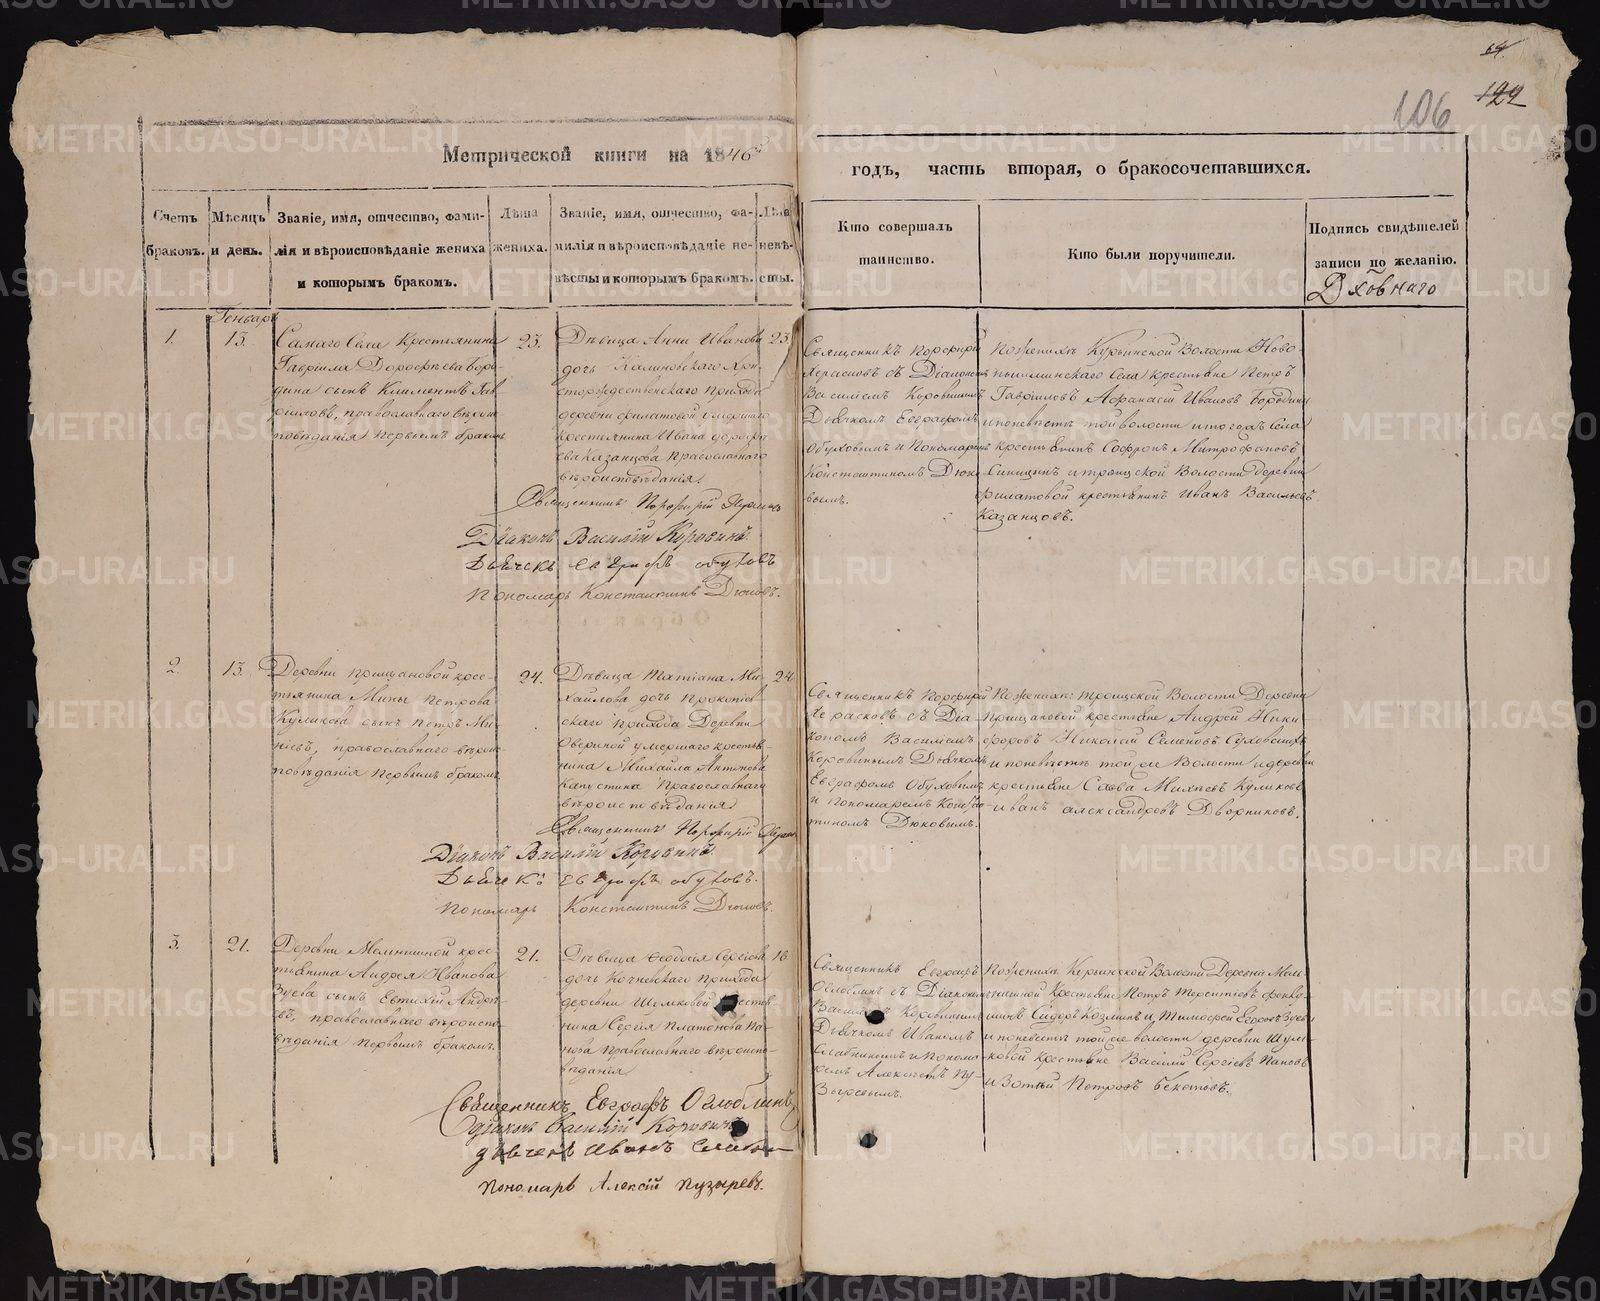 64.
106 122
Метрической книги на 1846й
годъ, часть вторая, о бракосочетавшихся.
Счетъ браковъ.
Мѣсяцъ и день.
Званіе, имя, отчество, фами-
лія и вѣроисповѣданіе жениха
и которымъ бракомъ.
Лѣта жениха.
Званіе, имя, отчество, фа-
милія и вѣроисповѣданіе не-
вѣсты и которымъ бракомъ.
Лѣта невѣ-
сты.
Кто совершалъ
таинство.
Кто были поручители.
Подпись свидѣтелей
записи по желанію.
Генварь
1.
13.
Самаго Села Крестьянина
Гавріила Дорофѣева Боро-
дина сынъ Климентъ Гав-
риловъ, православнаго вѣроис
повѣданія первымъ бракомъ
23.
Дѣвица Анна Иванова
дочь Калиновскаго Хри-
сторождественскаго прихода
деревни Филатовой умершаго
крестьянина Ивана Дорофѣ
ева Казанцова Православнаго
вѣроисповѣданія
23.
Священникъ Порфирій
Херасковъ съ Діакономъ
Василіемъ Коровинымъ
Дьячкомъ Евграфомъ
Обуховымъ и Пономаремъ
Константиномъ Дюко-
вымъ.
По женихѣ Курьинской Волости Ново-
пышминскаго Села крестьяне Петръ
Гавріиловъ Афанасій Ивановъ Бородины
и по невѣстѣ той волости и тогожъ Села
крестьянинъ Софронъ Митрофановъ
Синицынъ и троицкой Волости деревни
Филатовой крестьянинъ Иванъ Васильевъ
Казанцовъ.
Священникъ Порфирій
Діаконъ Василій Коровинъ.
Дьячекъ Евграфъ Обуховъ
Пономарь Константинъ Дюковъ.
2.
13.
Деревни Прищановой крес-
тьянина Мины Петрова
Куликова сынъ Петръ Ми-
нѣевъ, православнаго вѣроис-
повѣданія первымъ бракомъ
24.
Дѣвица Татіана Ми-
хайлова дочь Прокопіев
скаго прихода Деревни
Озериной умершаго крестья-
нина Михаила Антонова
Капустина Православнаго
вѣроисповѣданія
24
Священникъ Порфирій
Херасковъ съ Діа-
кономъ Василіемъ
Коровинымъ Дьячкомъ
Евграфомъ Обуховымъ
и пономаремъ Конста-
тиномъ Дюковымъ.
По женихѣ: троицкой Волости Деревни
Прищановой крестьяне Андрей Ники
форовъ Николай Семеновъ Суховскихъ
и по невѣстѣ той же Волости и деревни
крестьяне Савва Михѣевъ Куликовъ
Иванъ Александровъ Дворниковъ.
Священникъ Порфирій
Діаконъ Василій Коровинъ.
Дьячекъ Евграфъ Обуховъ.
Пономарь Константинъ Дюковъ.
3.
21.
Деревни Мельничной крес-
тьянина Андрея Иванова
Зуева сынъ Евтихій Андрѣ-
евъ, православнаго вѣроиспо-
вѣданія первымъ бракомъ.
21.
Дѣвица Феодосія Сергіева
дочь прихода
деревни Шульковой крестья
нина Сергія Платонова Па-
нова православнаго вѣроиспо-
вѣданія
18
Священникъ Евграфъ
Оглоблинъ съ Діакономъ
Василіемъ Коровинымъ
Дьячкомъ Иваномъ
и Понома-
ремъ Алексѣемъ Пу-
зыревымъ.
По женихѣ Курьинской Волости Деревни Мель
ничной Крестьяне Петръ Терентіевъ
Сидоръ Козминъ и Тимофей Егоровъ Зуевы
и по невѣстѣ той же волости деревни Шуль-
ковой Крестьяне Василій Сергіевъ Пановъ
и Зотей Петровъ Бекетовъ.
Священникъ Евграфъ Оглоблинъ
Діаконъ Василій Коровинъ
дьячекъ Иванъ
Пономарь Алексій Пузыревъ.